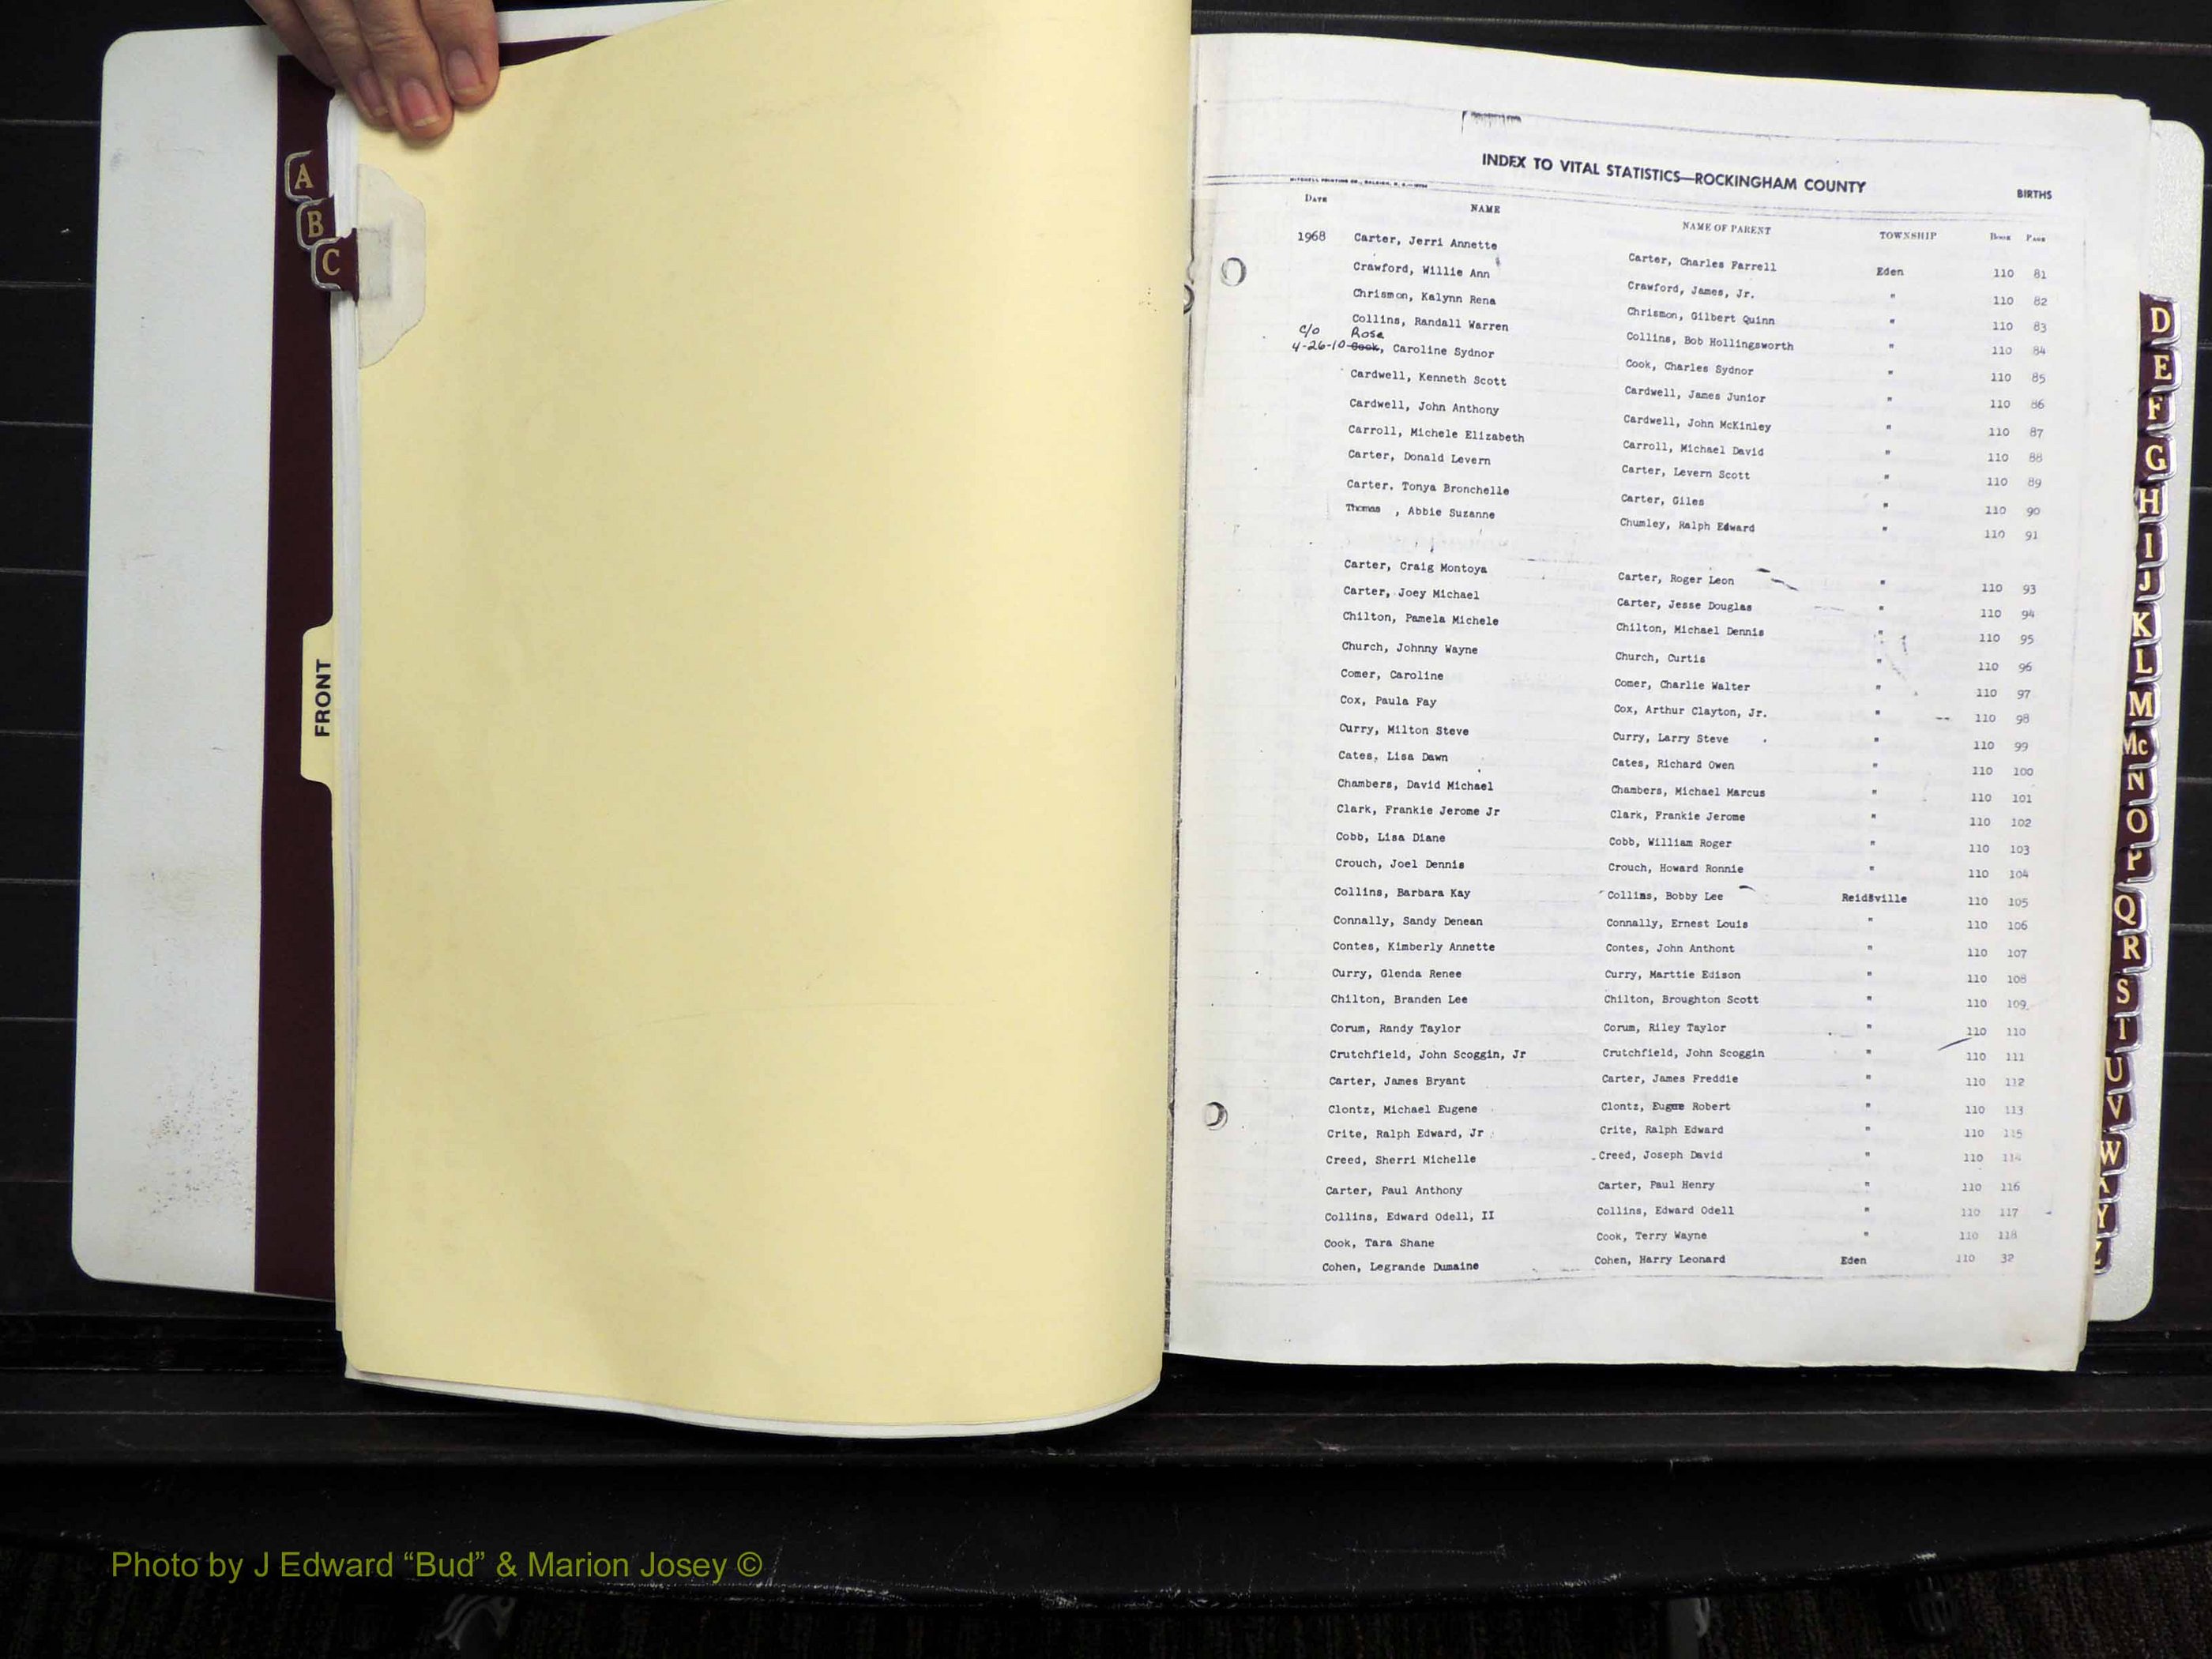 A
B
C
FRONT
INDEX TO VITAL STATISTICS—ROCKINGHAM COUNTY
BIRTHS
DATE NAME NAME OF PARENT TOWNSHIP BOOK PAGE
1968 Carter, Jerri Annette Carter, Charles Farrell Eden 110 81
Crawford, Willie Ann Crawford, James, Jr. " 110 82
Chrismon, Kalynn Rena Chrismon, Gilbert Quinn " 110 83
Collins, Randall Warren Collins, Bob Hollingsworth " 110 84
c/o Rose
4-26-10 Cook, Caroline Sydnor Cook, Charles Sydnor " 110 85
Cardwell, Kenneth Scott Cardwell, James Junior " 110 86
Cardwell, John Anthony Cardwell, John McKinley " 110 87
Carroll, Michele Elizabeth Carroll, Michael David " 110 88
Carter, Donald Levern Carter, Levern Scott " 110 89
Carter. Tonya Bronchelle Carter, Giles " 110 90
Thomas , Abbie Suzanne Chumley, Ralph Edward " 110 91
Carter, Craig Montoya Carter, Roger Leon " 110 93
Carter, Joey Michael Carter, Jesse Douglas " 110 94
Chilton, Pamela Michele Chilton, Michael Dennis " 110 95
Church, Johnny Wayne Church, Curtis " 110 96
Comer, Caroline Comer, Charlie Walter " 110 97
Cox, Paula Fay Cox, Arthur Clayton, Jr. " 110 98
Curry, Milton Steve Curry, Larry Steve " 110 99
Cates, Lisa Dawn Cates, Richard Owen " 110 100
Chambers, David Michael Chambers, Michael Marcus " 110 101
Clark, Frankie Jerome Jr Clark, Frankie Jerome " 110 102
Cobb, Lisa Diane Cobb, William Roger " 110 103
Crouch, Joel Dennis Crouch, Howard Ronnie " 110 104
Collins, Barbara Kay Collins, Bobby Lee Reidsville 110 105
Connally, Sandy Denean Connally, Ernest Louis " 110 106
Contes, Kimberly Annette Contes, John Anthont " 110 107
Curry, Glenda Renee Curry, Marttie Edison " 110 108
Chilton, Branden Lee Chilton, Broughton Scott " 110 109
Corum, Randy Taylor Corum, Riley Taylor " 110 110
Crutchfield, John Scoggin, Jr Crutchfield, John Scoggin " 110 111
Carter, James Bryant Carter, James Freddie " 110 112
Clontz, Michael Eugene Clontz, Robert " 110 113
Crite, Ralph Edward, Jr Crite, Ralph Edward " 110 115
Creed, Sherri Michelle Creed, Joseph David " 110 114
Carter, Paul Anthony Carter, Paul Henry " 110 116
Collins, Edward Odell, II Collins, Edward Odell " 110 117
Cook, Tara Shane Cook, Terry Wayne " 110 118
Cohen, Legrande Dumaine Cohen, Harry Leonard Eden 110 32
D
E
F
G
H
I
J
K
L
M
Mc
N
O
P
Q
R
S
T
U
V
W
Y
Z
Photo by J Edward “Bud” & Marion Josey ©